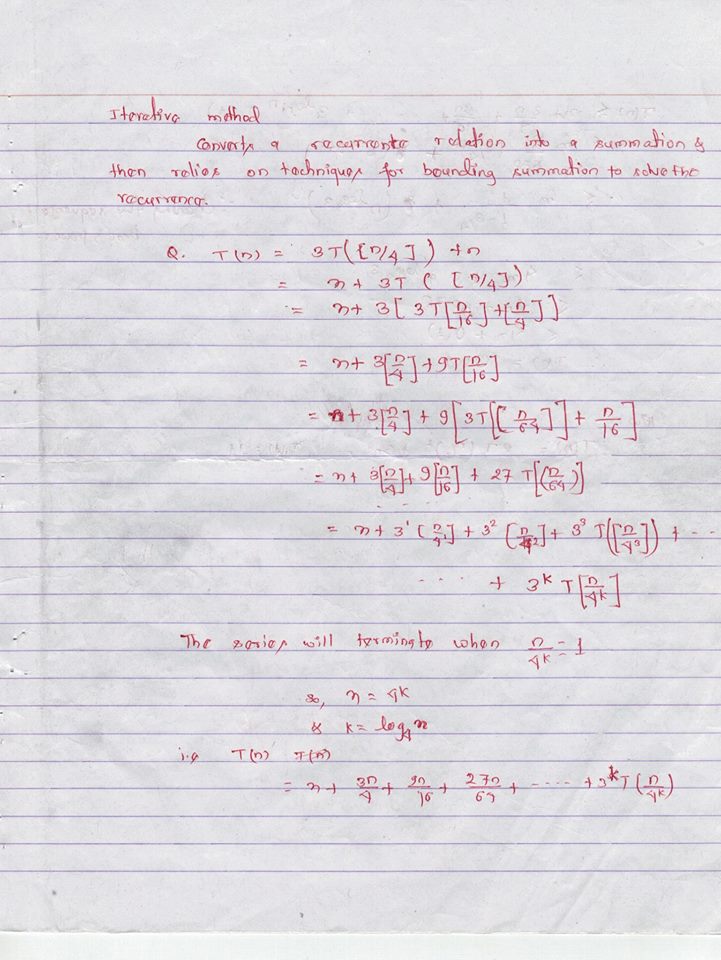 Iterative method
Converts a recurrente relation into a summation &
then relies on techniques for bounding summation to solve the
recurrence.
Q. T(n) = 3T([n/4]) + n
= n + 3T ([n/4])
= n + 3[3T[n/16] + [n/4]]
= n + 3[n/4] + 9T[n/16]
= n + 3[n/4] + 9[3T[[n/64]] + n/16]
= n + 3[n/4] + 9[n/16] + 27 T[(n/64)]
= n + 3¹[n/4¹] + 3²[n/4²] + 3³ T([n/4³]) + ...
.... + 3ᵏ T[n/4ᵏ]
The series will terminate when n/4ᵏ = 1
so, n = 4ᵏ
& k = log₄n
i.e T(n) T(n)
= n + 3n/4 + 9n/16 + 27n/64 + ..... + 3ᵏT(n/4ᵏ)